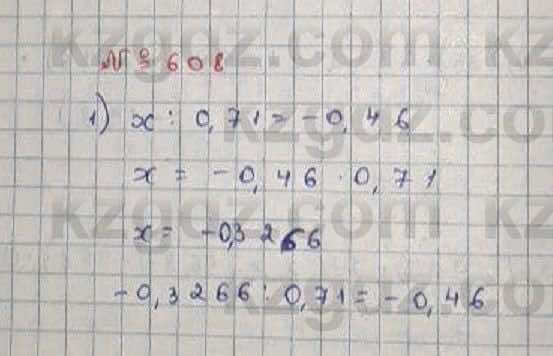 № 608
1) x : 0,71 = -0,46
x = -0,46 · 0,71
x = -0,3266
-0,3266 : 0,71 = -0,46
kzgdz.com
kzgdz.com